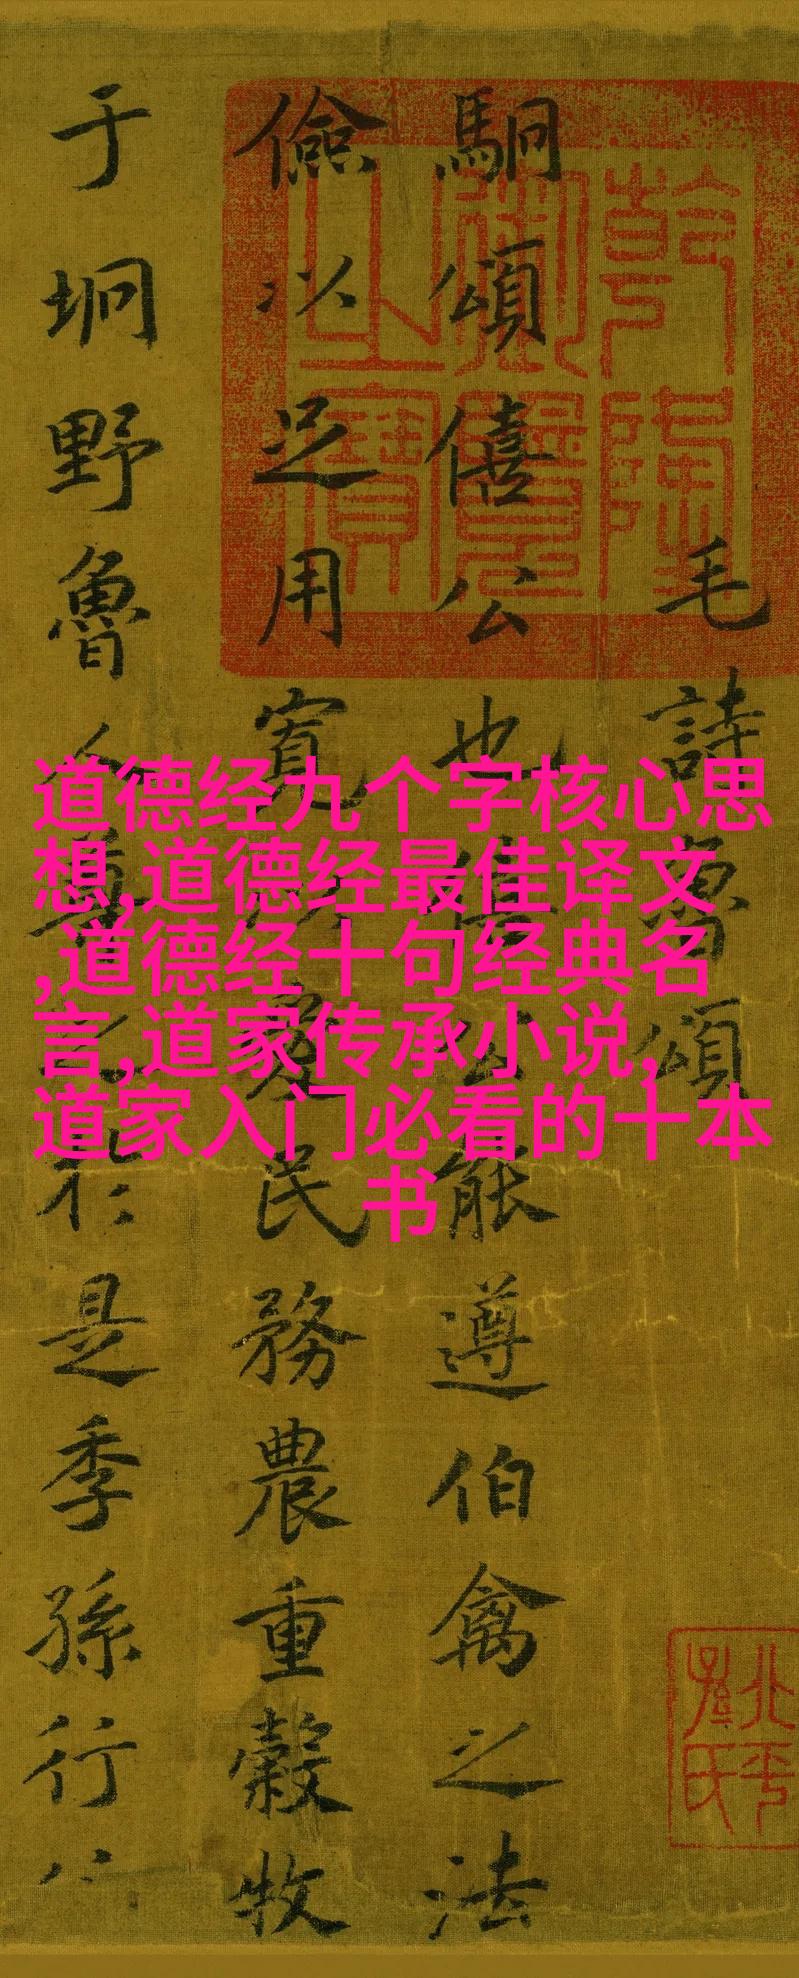 毛詩魯頌
駉頌僖公也僖公能遵伯禽之法
儉以足用寬以愛民務農重穀牧
于坰野魯人尊之於是季孫行
乾隆
御覽
之寶
北平
孫氏
道德经九个字核心思
想,道德经最佳译文
,道德经十句经典名
言,道家传承小说,
道家入门必看的十本
书